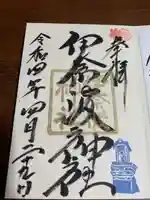 参拝
伊奈波神社
令和四年四月二十九日